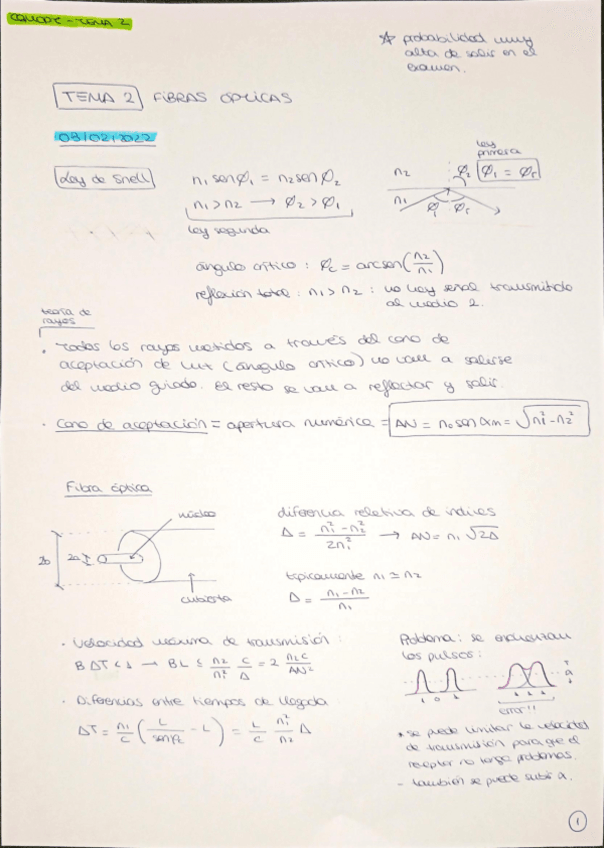 COMOPT - TEMA 2
☆ probabilidad muy
alta de salir en el
examen.
TEMA 2 FIBRAS ÓPTICAS
08/02/2022
Ley de Snell
n₁ senφ₁ = n₂ senφ₂
n₁ > n₂ → φ₂ > φ₁
Ley segunda
Ley
primera
n₂
φ₂
φ₁ = φr
n₁
φ₁
φr
ángulo crítico : φc = arcsen(n₂/n₁)
reflexión total : n₁ > n₂ : no hay señal transmitida
al medio 2.
teoría de
rayos
· Todos los rayos metidos a través del cono de
aceptación de luz (ángulo crítico) no van a salirse
del medio guiado. El resto se van a reflectar y salir.
· Cono de aceptación = apertura numérica = AN = n₀ sen αm = √(n₁² - n₂²)
Fibra óptica
núcleo
2b
2a
cubierta
diferencia relativa de índices
Δ = (n₁² - n₂²)/(2n₁²) → AN = n₁ √(2Δ)
típicamente n₁ ≃ n₂
Δ = (n₁ - n₂)/n₁
· Velocidad máxima de transmisión :
B ΔT < 1 → BL ≤ (n₂/n₁²) (c/Δ) = 2 (n₂c/AN²)
· Diferencias entre tiempos de llegada
ΔT = (n₁/c) (L/senφc - L) = (L/c) (n₁²/n₂) Δ
Problema : se ensanchan
los pulsos :
1 0 1
1 1 1
error!!
* se puede limitar la velocidad
de transmisión para que el
receptor no tenga problemas.
- también se puede subir a.
1